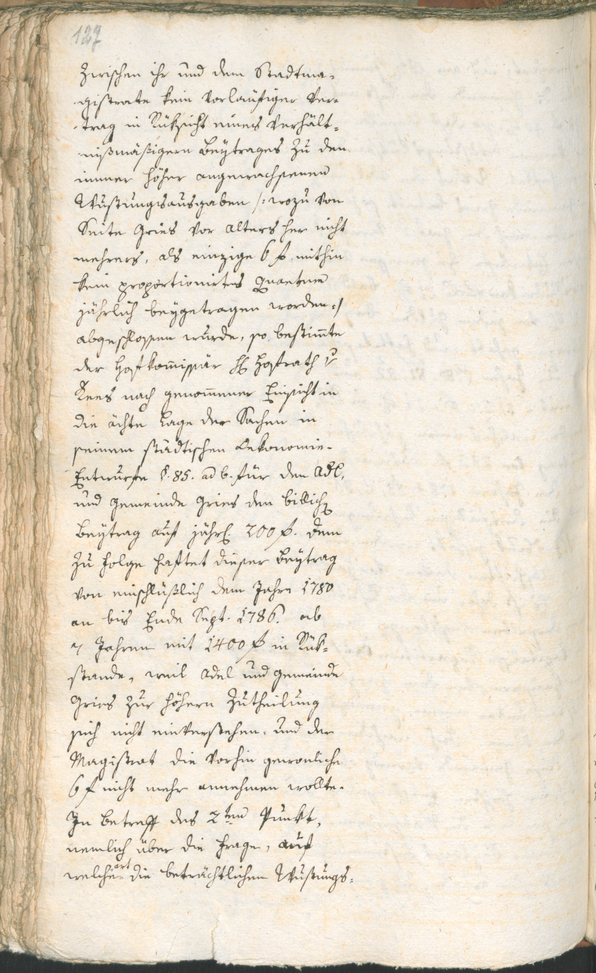 127
Zwischen ihr und dem Stadtma-
gistrate kein vorläufiger Ver-
trag in Rüksicht eines verhält-
nißmäßigern Beÿtrages zu den
immer höher angewachsenen
Wustungsausgaben /: wozu von
Seite Gries vor alters her nicht
mehrers, als einzige 6 f. mithin
kein proportionirtes Quantum
jährlich beÿgetragen worden :/
abgeschlossen wurde, so bestimmte
der Hofkommissär H. Hofrath v.
Kees nach genommener Einsicht in
die ächte Lage der Sachen in
seinem städtischen Oekonomie-
Entwurfe §. 85. ad b. für den Adl.
und Gemeinde Gries den billich
Beÿtrag auf jährl. 200 f. Dem
zu folge haftet dieser Beÿtrag
von einschlüßlich dem Jahre 1780
an bis Ende Sept. 1786. ab
7 Jahren mit 1400 f in Rük-
stande, weil Adel und Gemeinde
Gries zur höhern Zutheilung
sich nicht einverstehen, und der
Magistrat die vorhin gewonliche
6 f nicht mehr annehmen wollte.
In Betreff des 2ten Punkt,
nemlich über die Frage, auf
welche art die beträchtlichen Wustungs-